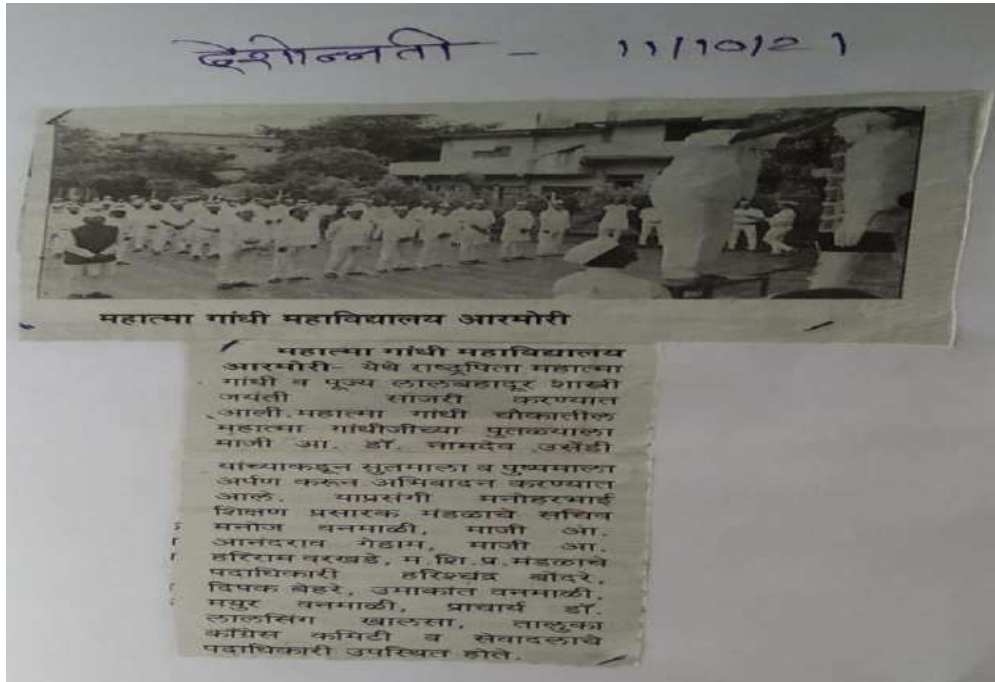 देशोन्नती - 11/10/21
महात्मा गांधी महाविद्यालय आरमोरी
महात्मा गांधी महाविद्यालय
आरमोरी- येथे राष्ट्रपिता महात्मा
गांधी व पूज्य लालबहादूर शास्त्री
जयंती साजरी करण्यात
आली.महात्मा गांधी चौकातील
महात्मा गांधीजीच्या पूतळ्याला
माजी आ. डॉ. नामदेव उसेंडी
यांच्याकडून सुतमाला व पुष्पमाला
अर्पण करून अभिवादन करण्यात
आले. याप्रसंगी मनोहरभाई
शिक्षण प्रसारक मंडळाचे सचिव
मनोज वनमाळी, माजी आ.
आनंदराव गेडाम, माजी आ.
हरिराम वरखडे, म.शि.प्र.मंडळाचे
पदाधिकारी हरिश्चंद्र बोंदरे,
दिपक बेहरे, उमाकांत वनमाळी,
मयुर वनमाळी, प्राचार्य डॉ.
लालसिंग खालसा, तालुका
काँग्रेस कमिटी व सेवादलाचे
पदाधिकारी उपस्थित होते.